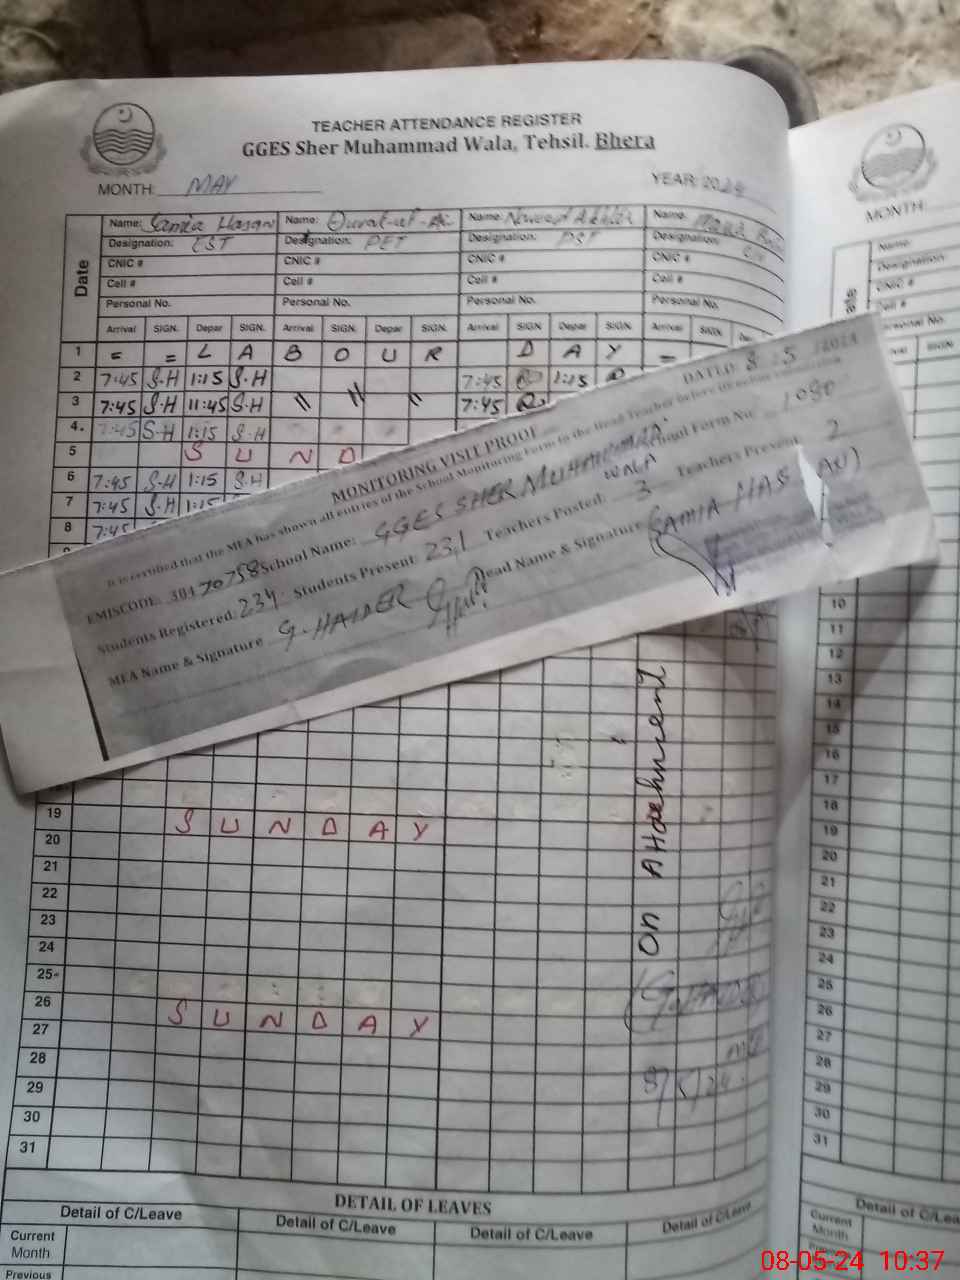 TEACHER ATTENDANCE REGISTER
GGES Sher Muhammad Wala, Tehsil. Bhera
MONTH: MAY YEAR: 2024
Date
Name: Samia Hasan Name: Name: Name:
Designation: EST Designation: PET Designation: PST Designation:
CNIC # CNIC # CNIC # CNIC #
Cell # Cell # Cell # Cell #
Personal No. Personal No. Personal No. Personal No.
Arrival SIGN. Depar SIGN. Arrival SIGN. Depar SIGN. Arrival SIGN Depar SIGN. Arrival SIGN.
1 = = L A B O U R D A Y =
2 7:45 S.H 1:15 S.H 7:45 1:15
3 7:45 S.H 11:45 S.H 7:45
4. 7:45 S.H 1:15 S.H
5 S U N D
6 7:45 S.H 1:15 S.H
7 7:45 S.H 1:15
8 7:45
DATED: 8.5 /2024
MONITORING VISIT PROOF
It is certified that the MEA has shown all entries of the School Monitoring Form to the Head Teacher before
EMISCODE: School Name: GGES SHER MUHAMMAD WALA School Form No: 1080
Students Registered: 234 Students Present: 231 Teachers Posted: 3 Teachers Present: 2
MEA Name & Signature G.HAIDER Head Name & Signature (SAMIA HASSAN)
On Attachment
19
20 S U N D A Y
21
22
23
24
25
26
27 S U N D A Y
28
29
30
31
8/5/24
DETAIL OF LEAVES
Detail of C/Leave Detail of C/Leave Detail of C/Leave Detail of C/Leave
Current
Month
Previous
MONTH:
Name:
Designation:
CNIC #
Cell #
SIGN
10
11
12
13
14
15
16
17
18
19
20
21
22
23
24
25
26
27
28
29
30
31
Current
Month
08-05-24 10:37